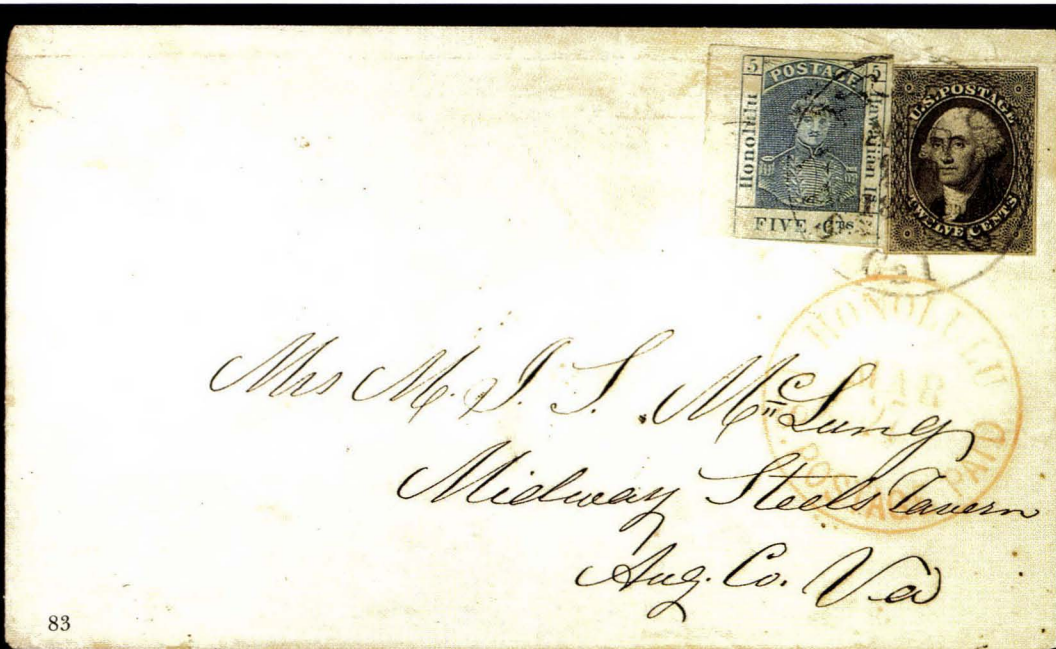 5 POSTAGE 5
Honolulu
Hawaiian Is.
FIVE Cts.
U.S. POSTAGE
TWELVE CENTS
Cal
HONOLULU
MAR
POSTAGE PAID
Mrs M. J. S. McClung
Midway Steels Tavern
Aug. Co. Va
83